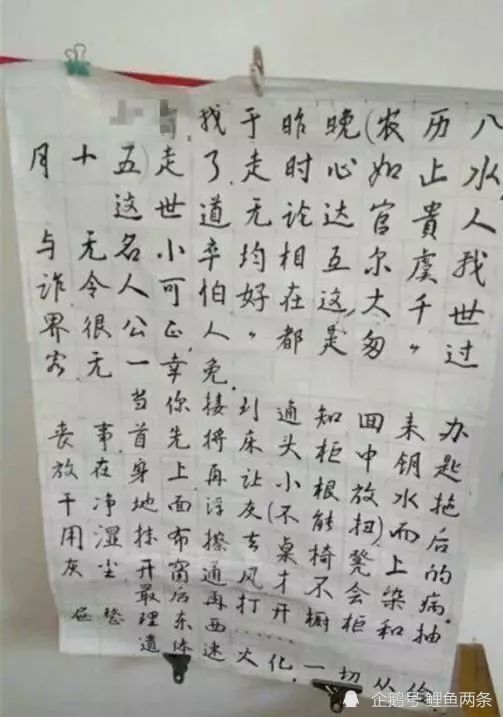 我于昨晚(农历八
月十五)走了,走时心如止水,
这世道无论达官贵人
与无名小卒均相互尔虞我
诈,令人可怕,好在这大千世
界很公正,人〃都是匆〃过
客,无一幸免.
当你接到通知来办
丧事,首先将床头柜中钥匙
放在身上,再让小根放水拖
干净地面浮灰去(不能扭)而后
用湿抹布擦桌椅凳上的
灰尘,开窗通风才不会染病.
最后再打开橱柜和抽
屉整理东西……
遗体速火化,一切从俭
企鹅号 鲤鱼两条